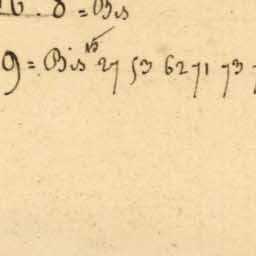 6 . 8 = Bis
9 = Bis 15 27 53 62 71 73